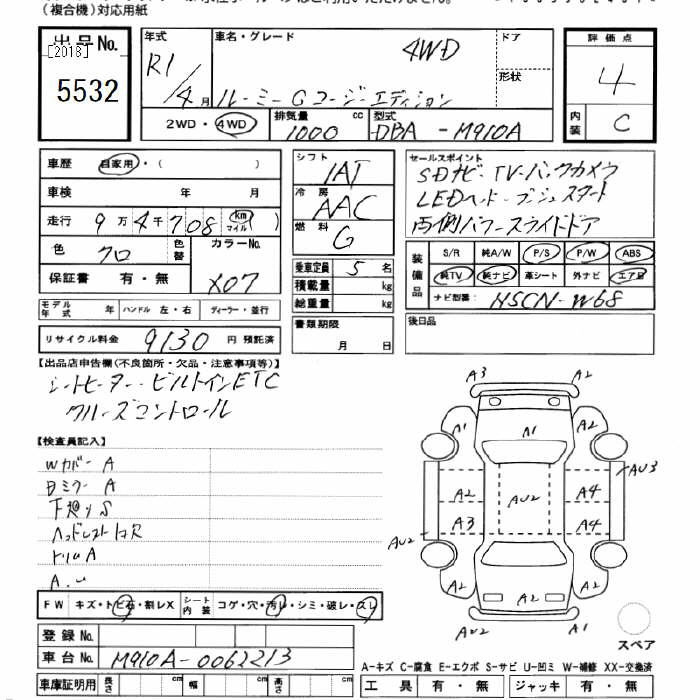 (複合機)対応用紙
出品No.
[2018]
5532
年式
R1/4月
車名・グレード
4WD
ルーミーGコージーエディション
ドア
形状
2WD・4WD
排気量
1000
cc
型式
DBA-M910A
評価点
4
内装
C
車歴
自家用・( )
車検 年 月
走行 9万4千708 km マイル ( )
色
クロ
色替
カラーNo.
X07
保証書 有・無
モデル年式 年 ハンドル 左・右 ディーラー・並行
リサイクル料金 9130 円 預託済
シフト
IAT
冷房
AAC
燃料
G
乗車定員 5 名
積載量 kg
総重量 kg
書類期限
月 日
セールスポイント
SDナビ・TV・バックカメラ
LEDヘッド・プッシュスタート
両側パワースライドドア
装備品
S/R 純A/W P/S P/W ABS
純TV 純ナビ 革シート 外ナビ エアB
ナビ型番 NSCN-W68
後日品
【出品店申告欄(不良箇所・欠品・注意事項等)】
シートヒーター・ビルトインETC
クルーズコントロール
【検査員記入】
Wカバー A
日ミラー A
下廻り S
ヘッドレスト
トリム A
A.u
FW キズ・トビ石・割レX
シート内装 コゲ・穴・汚レ・シミ・破レ・スレ
登録No.
車台No. M910A-0062213
車庫証明用 長さ cm 幅 cm 高さ cm
A3 A2
A1 A1 A2
AU3
A2 AU2 A4
A3 A4
AU2
A2 A2 A2
AU2 A3
スペア
A-キズ C-腐食 E-エクボ S-サビ U-凹ミ W-補修 XX-交換済
工具 有・無 ジャッキ 有・無